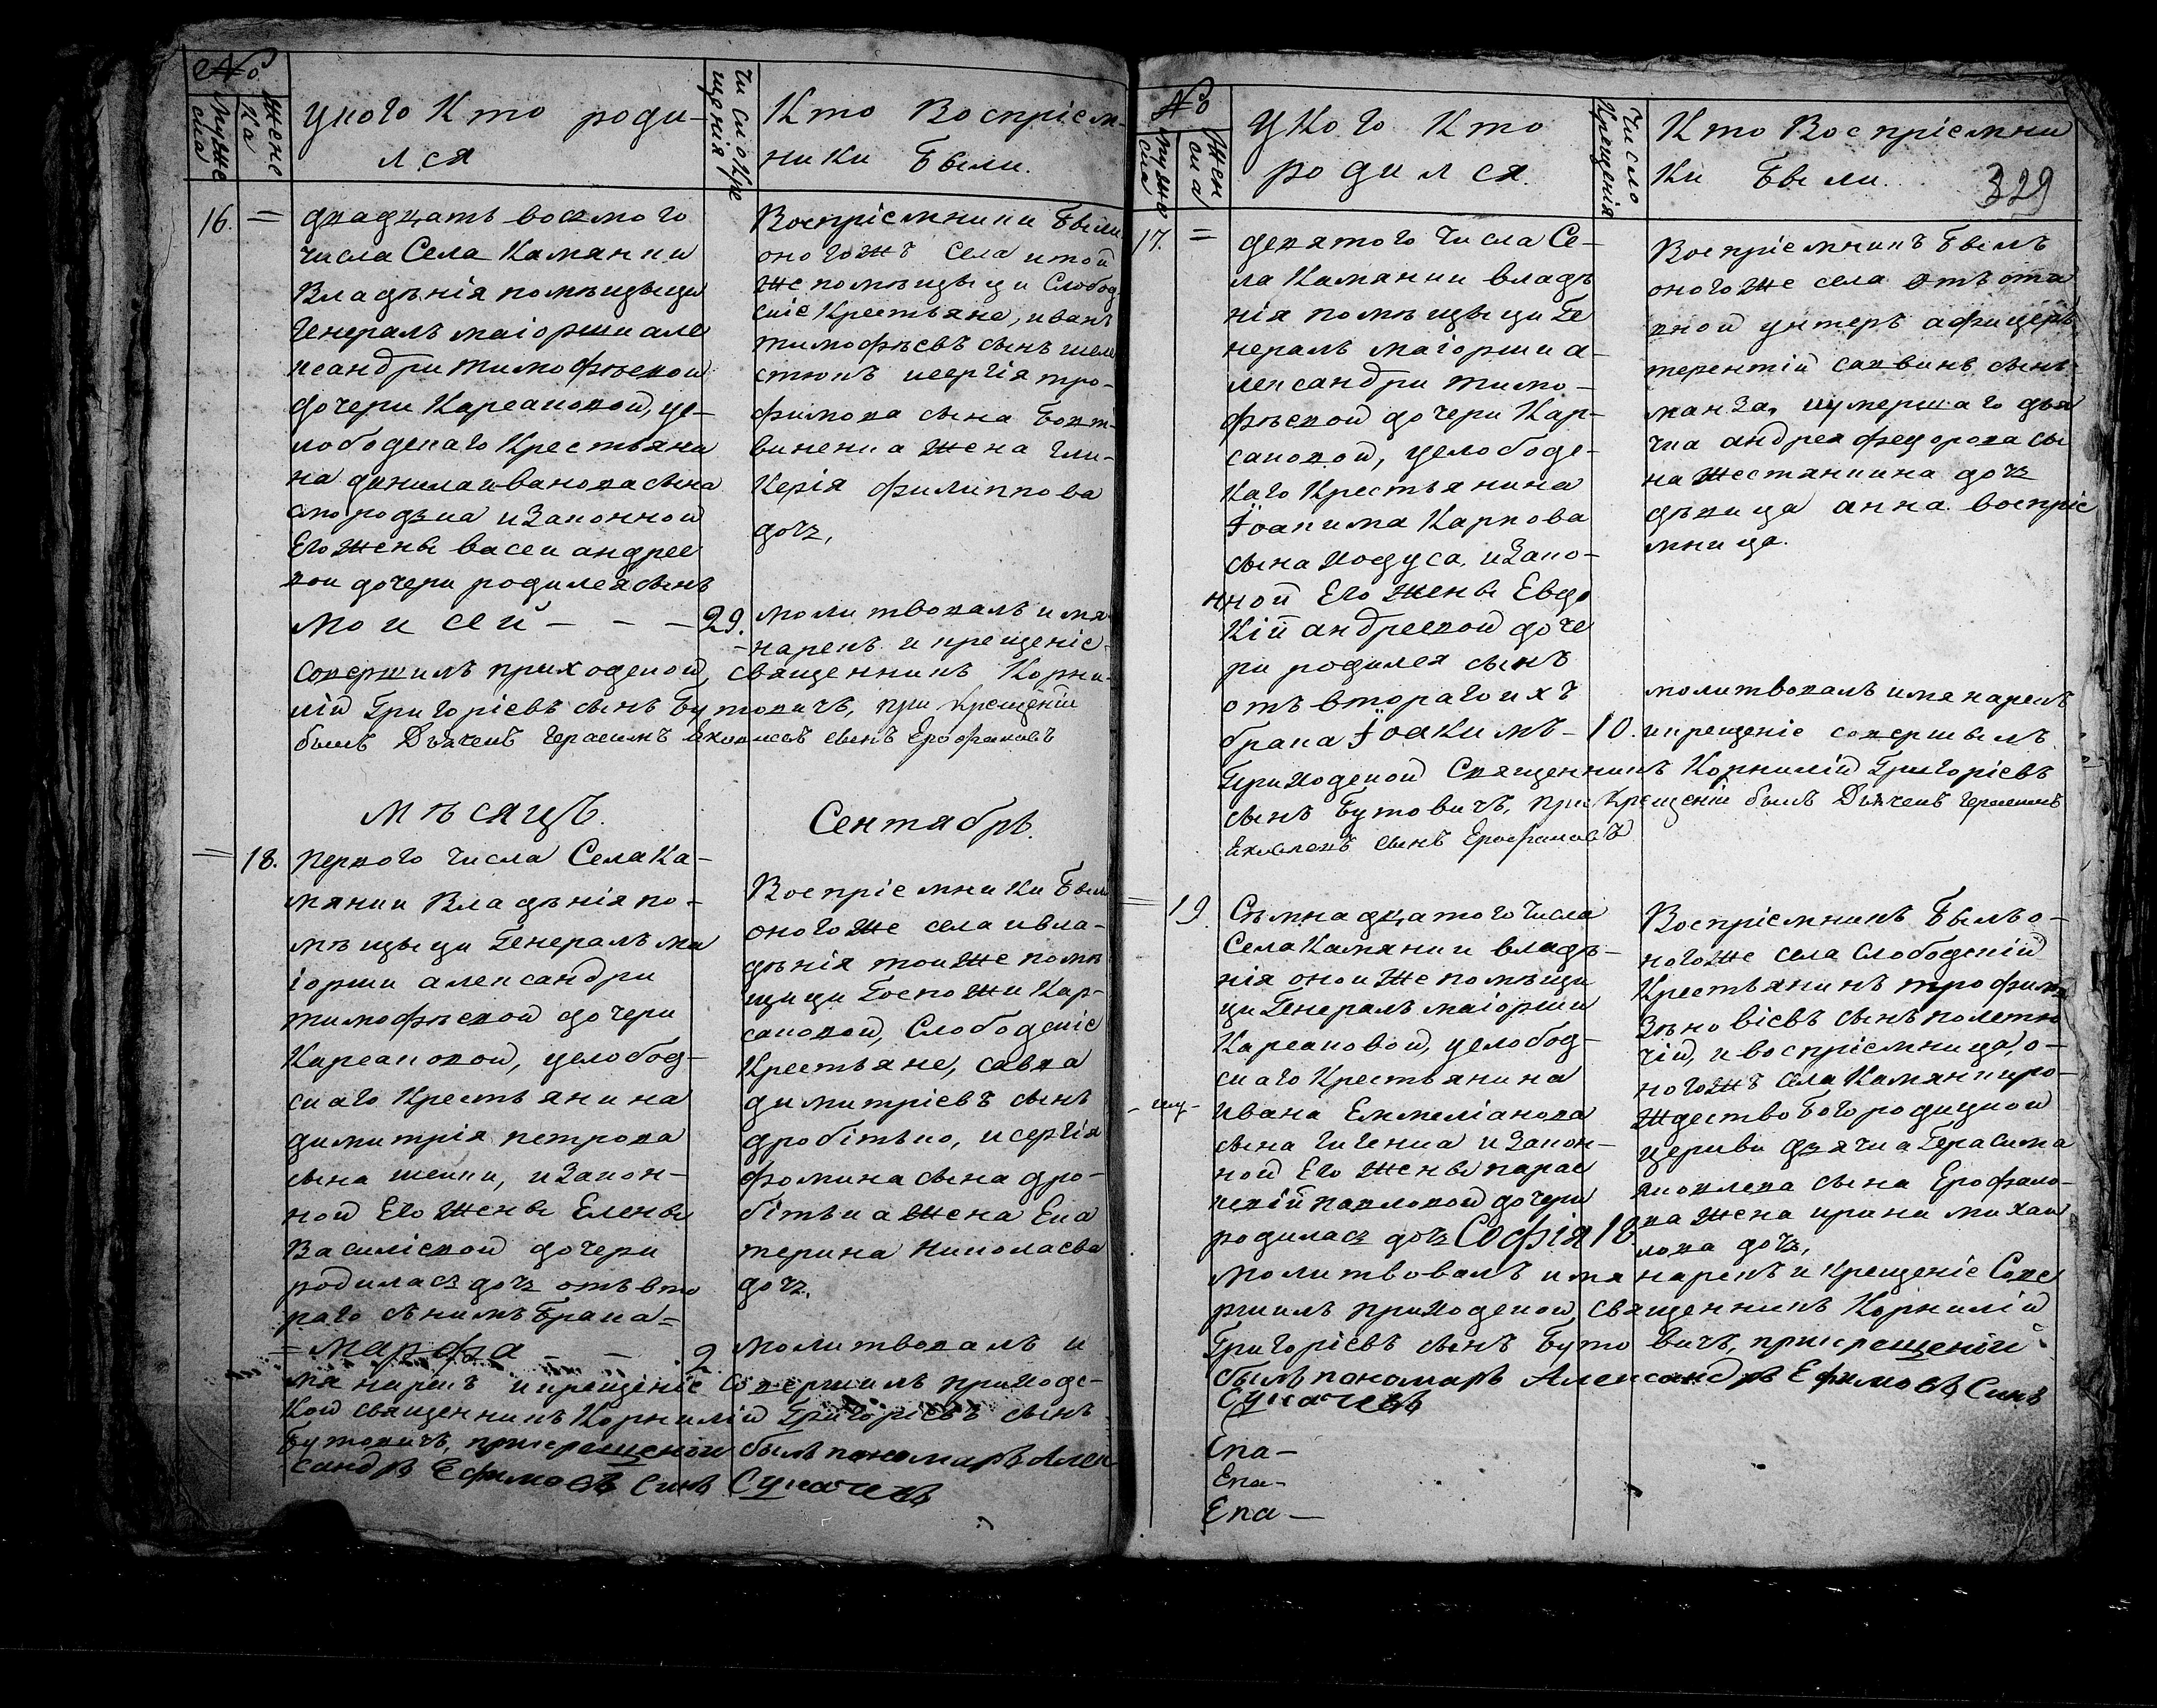 №
Муже
ска
Жене
ка
укого Кто роди-
лся
Число Кре
щенія
Кто Воспріем-
ники Были.
16. =
двадцать восмого
числа Села Камянки
Владѣнія помѣщыци
Генералъ маіорши але
ксандри тимофѣевой
дочери Карсаковой, усло-
лободскаго Крестьяни
на данила иванова сына
смородька и Законной
Его жены васси андрее
вои дочери родился сынъ
Мои сей - - - 29.
Воспріемники Были
оногожъ Села итой
же помѣщыци Слобод
скіе Крестьяне, иванъ
тимофѣевъ сынъ шеле
стюкъ исергія тро-
фимова сына Бовт-
виненка жена гли-
Керія филиппова
дочъ,
молитвовалъ имя
-нарекъ и крещеніе-
совершилъ приходской, священникъ Корни-
лій Григоріевъ сынъ Бутовичъ, при крещеніи
былъ Дьячекъ Герасимъ Яковлевъ сынъ Ерофаловъ
Мѣсяцъ. Сентябрь.
= 18.
первого числа Села Ка-
мянки Владѣнія по-
мѣщыци Генералъ ма
іорши александри
тимофѣевой дочери
Карсаковой, услобод-
скаго Крестьянина
димитрія петрова
сына шейки, и Закон-
ной Его жены Елены
Василіевой дочери
родилась дочъ отъ вто
раго снимъ Брака =
= Марфа - - 2
Воспріемники Были
оногоже села ивла-
дѣнія тоиже помѣ
щици Госпожи Кар-
саковой, Слободскіе
Крестьяне, савва
димитріевъ сынъ
дробітько, исергія
фомина сына дро-
бітька жена Ека
терина Николаева
дочъ.
молитвовалъ и
мя нарекъ икрещеніе совершилъ приходс-
кой священникъ Корнилій Григоріевъ сынъ
Бутовичъ, прикрещеніи былъ пономаръ Алек
сандръ Ефимовъ Синъ Сукачевъ
№
Мужес
ска
Жен
ска
У Кого Кто
родился.
Число
Крещенія
Кто Воспріемни
Ки Были.
329
17. =
девятого числа Се-
ла Камянки владѣ
нія помѣщыци Ге
нералъ маіорши а-
лександри тимо-
фѣевой дочери Кар-
саковой, услободс-
Каго Крестьянина
Іоакима Карпова
сына Кодуса, и Зако-
нной Его жены Евдо
Кій андреевой доче
ри родился сынъ
отъ вторагоихъ
брака Іоакимъ - 10.
Воспріемникъ Былъ
оногоже села отъста
вной унтеръ афицеръ
терентій саввинъ сынъ
манза, иумершаго дья
чка андрея федорова сы
на жестанкина дочъ
дѣвица анна воспріе
мница.
молитвовалъ имя нарекъ
икрещеніе совершылъ
Приходской Священникъ Корнилій Григоріевъ
сынъ Бутовичъ, при Крещеніи былъ Дьячекъ герасимъ
Яковлевъ сынъ Ерофаловъ
= 19.
Сѣмнадцатого Числа
Села Камянки владѣ-
нія оноиже помѣщи
ци Генералъ маіорши
Карсаковой, услобод-
скаго Крестьянина
ивана Еммеліанова
сына гиченка и Закон-
ной Его жены парас
кевій павловой дочери
родилась дочъ Софія 18
Воспріемникъ Былъ о-
ногоже села Слободскій
Крестьянинъ трофимъ
Зѣновіевъ сынъ полетю
чій, ивоспріемница, о-
ногожъ села Камянки ро-
ждество Богородицкой
церкви дьячка Герасима
Яковлева сына Ерофало-
ва жена ирина михаи
лова дочъ,
Молитвовалъ имя нарекъ и Крещеніе Сове
ршилъ приходской, священникъ Корнилій
Григоріевъ сынъ Бутовичъ, прикрещеніи
былъ пономаръ Александръ Ефимовъ Синъ
Сукачевъ
Ека-
Ека-
Ека-